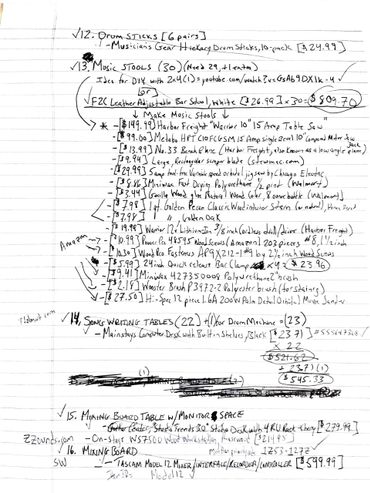 ✓12. Drum Sticks [6 pairs]
- Musician's Gear Hickory Drum Sticks, 10-pack [$24.99]
✓13. Music Stools (30) (Need 29, +1 extra)
Idea for DIY with 2x4 (1) = youtube.com/watch?
(or)
✓ F2C Leather Adjustable Bar Stool, White [$26.99] x 30 = $809.70
↓ Make Music Stools ↓
* - [$149.99] Harbor Freight "Warrior 10" 15 Amp Table Saw"
- [$99.00] Metabo HPT C10FCGSM 15 Amp single bevel 10" compound Miter Saw
- [$13.99] No. 33 Bench Plane (Harbor Freight, also known as a low angle plane)
- [9.99] Large, Rectangular scraper blade (stewmac.com)
- [29.99] 5 amp tool-free Variable speed orbital jigsaw by Chicago Electric
- [$8.86] Minwax Fast Drying Polyurethane 1/2 pint (Walmart)
- [$3.44] Gorilla Wood Glue Natural Wood Color, 8 ounce bottle (walmart)
- [7.98] 1 qt Golden Pecan Classic Wood Interior Stain
- [7.98] " " Golden Oak
- [19.98] Warrior 12v Lithium-Ion 3/8 inch Cordless drill/driver (Harbor Freight)
Amazon
- [10.99] Power Pro 48595 Wood Screws (Amazon) 203 pieces #8, 1 1/2 inch
- [10.30] Wood Pro Fasteners AP9X212-1 #9 by 2 1/2 inch Wood Screws
- [$5.99] 24 inch Quick release Bar Clamp x 4 = $23.96
- [$9.41] Miniwax 427350008 Polyurethane 2" brush
- [$2.18] Wooster Brush P3972-2 Polyester brush (for staining)
- [$27.50] Hi-Spec 12 piece 1.6A 200W Palm Detail Orbital Mouse Sander
Walmart.com
✓14. Song Writing Tables (22) + (1) for Drum Machine = (23)
✓ - Mainstays Computer Desk with Built-in Shelves, Black [$23.71] #555647308
x 22
$521.62
+ 23.71 (1)
$545.33
✓15. Mixing Board Table w/ Monitor Space
- Guitar Center, Studio Trends 30" Studio Desk with 4 RU Rack - Cherry [$279.99]
ZZounds.com - On-stage WS7500 Wood Workstation, Rosewood [$214.95]
✓16. Mixing Board
SW
- Tascam Model 12 Mixer/Interface/Recorder/Controller [$599.99]
Model 12 ✓